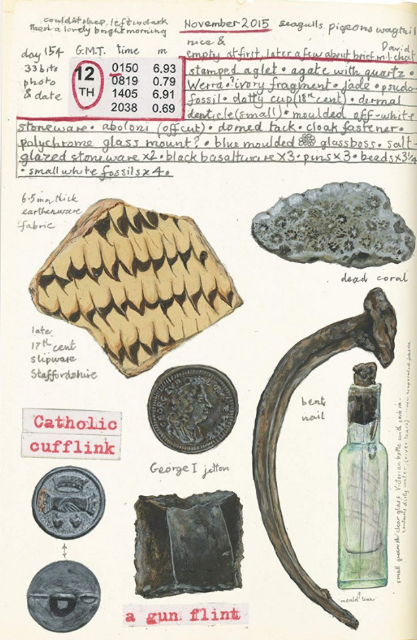 could't sleep. left in dark
November 2015 seagulls, pigeons wagtail
Had a lovely bright morning
nice & David
empty at first, later a few about brief ml chat
day 154 G.M.T. time m
33 bits
photo
& date
12
TH
0150 6.93
0819 0.79
1405 6.91
2038 0.69
stamped aglet • agate with quartz •
Werra • ivory fragment • jade • pseudo-
fossil • dotty cup (18th cent) • dermal
denticle (small) • moulded off-white
stoneware • aboloni (offcut) • domed tack • cloak fastener •
polychrome glass mount? • blue moulded glass boss. salt-
glazed stoneware x2 • black basaltware x3 • pins x3 • beads x3½
• small white fossils x4 •
6.5mm thick
earthenware
fabric
dead coral
late
17th cent
slipware
Staffordshire
bent
nail
George I jetton
Catholic
cufflink
a gun flint
mould line